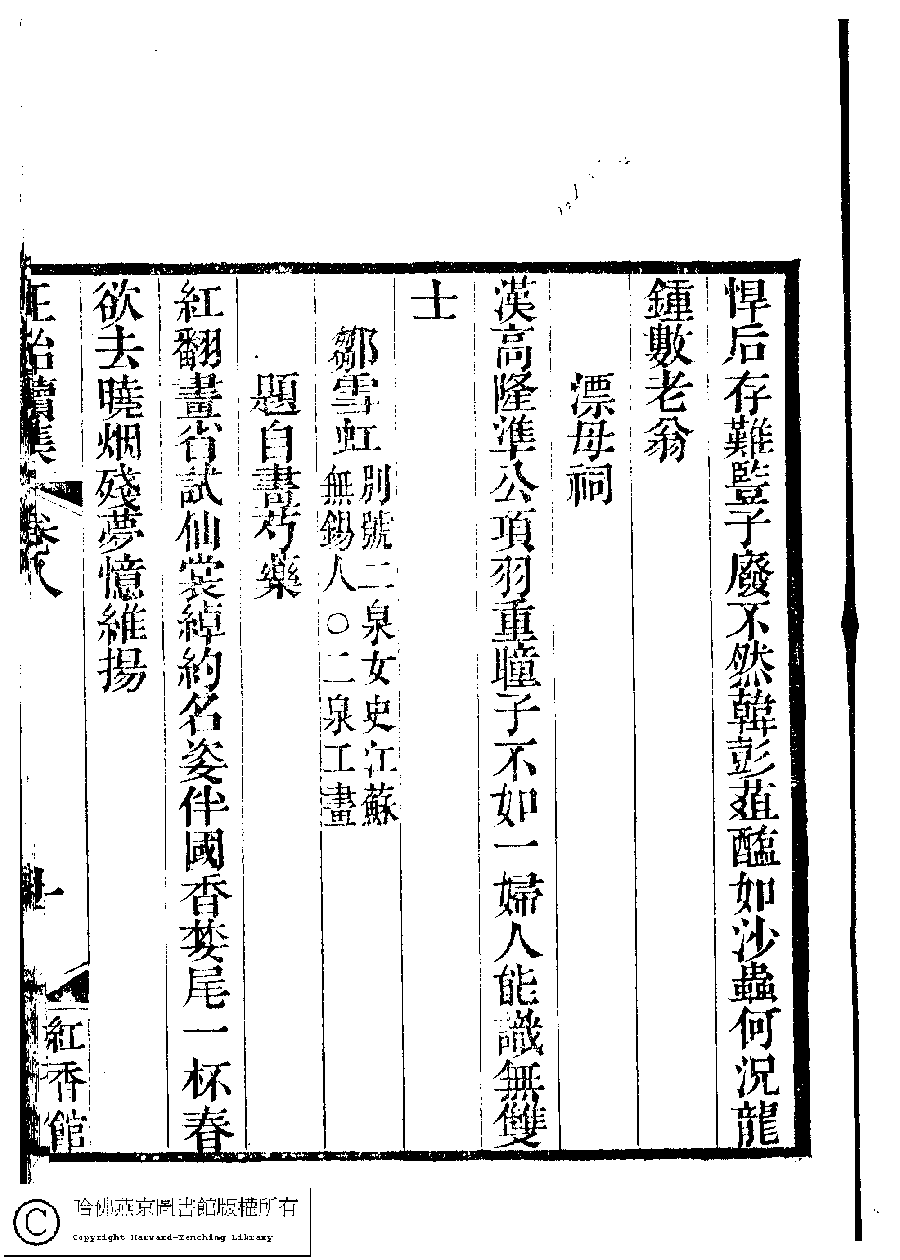 悍后存難豎子廢不然韓彭葅醢如沙蟲何況龍
鍾數老翁
漂母祠
漢高隆準公項羽重瞳子不如一婦人能識無雙
士
鄒雪虹 別號二泉女史江蘇
無錫人○二泉工畫
題自畫芍藥
紅翻畫省試仙裳綽約名姿伴國香婪尾一杯春
欲去曉烟殘夢憶維揚
正始續集 卷八
紅香館
哈佛燕京圖書館版權所有
Copyright Harvard-Yenching Library